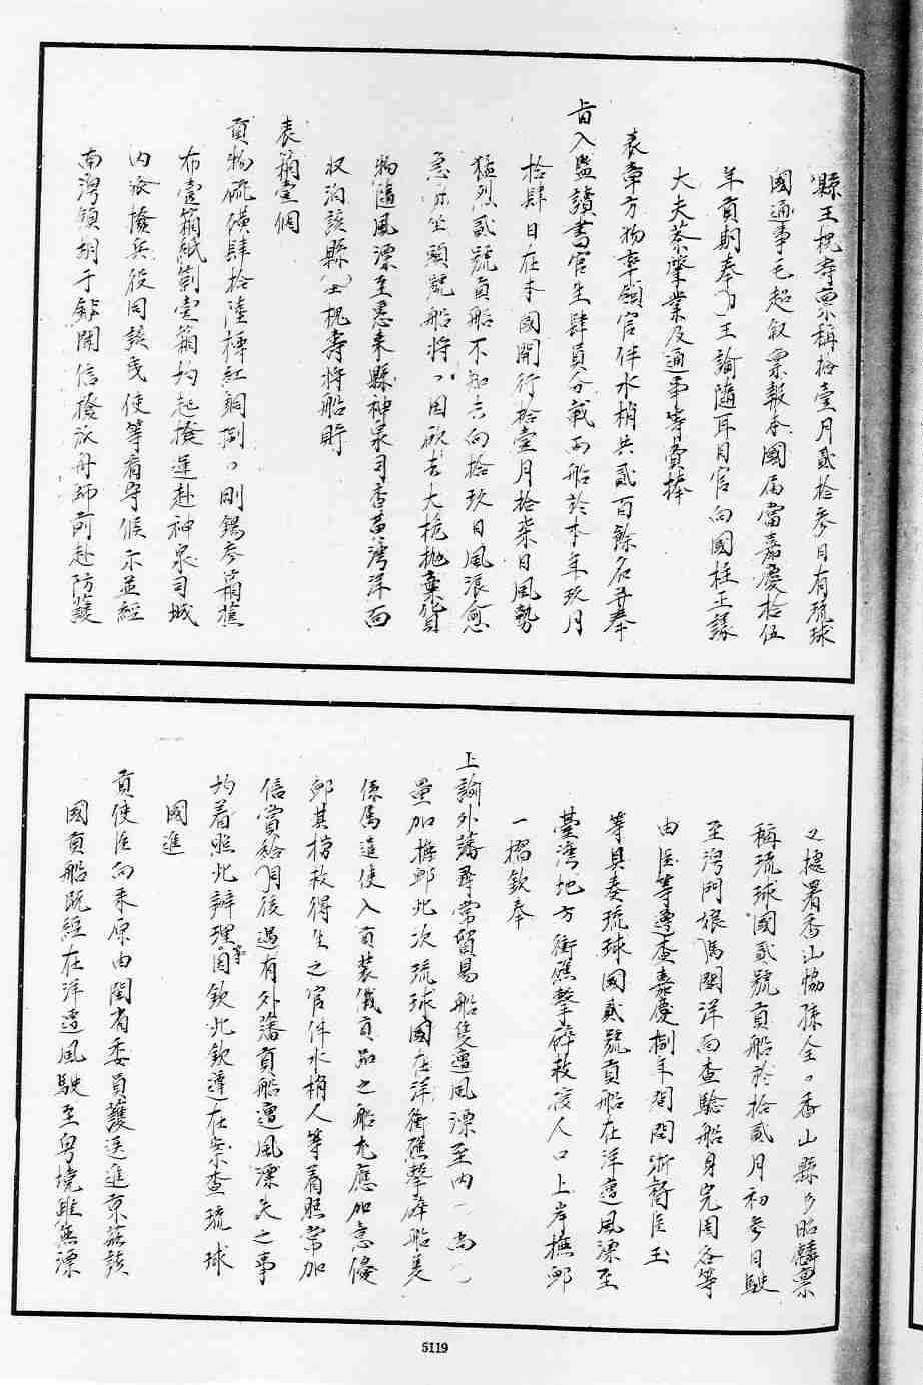 縣王槐壽稟稱拾壹月貳拾參日有琉球
國通事毛超叙稟報本國届當嘉慶拾伍
年貢期奉王諭隨耳目官向國柱正議
大夫蔡肇業及通事等賫捧
表章方物率領官伴水梢共貳百餘名并奉
旨入監讀書官生肆員分載兩船於本年玖月
拾肆日在本國開行拾壹月拾柒日風勢
猛烈貳號貢船不知去向拾玖日風浪愈
急亦坐頭號船將因砍去大桅拋棄貨
物隨風漂至惠來縣神泉司香黃灣洋面
收泊該縣王槐壽將船貯
表箱壹個
貢物硫磺肆拾陸擇紅銅捌剛錫參箱蕉
布壹箱紙劄壹箱均起撥運赴神泉司城
內放撥兵役同該貢使等看守候示並經
南灣鎮胡于鋐開信撥派舟師前赴防護
又據署香山協孫全香山縣彭昭麟稟
稱琉球國貳號貢船於拾貳月初參日駛
至灣門娘馬閣洋面查驗船身完固各等
由臣等遵查嘉慶捌年閩浙督臣玉
等具奏琉球國貳號貢船在洋遭風漂至
臺灣地方衝礁擊碎救援人口上岸撫卹
一摺欽奉
上諭外藩尋常貿易船隻遭風漂至內一尚
量加撫卹此次琉球國在洋衝礁擊碎船隻
係屬遣使入貢裝儀貢品之船尤應加意優
卹其撈救得生之官伴水梢人等着照常加
倍賞給嗣後遇有外藩貢船遭風漂失之事
均着照此辦理等因欽此欽遵在案查琉球
國進
貢使臣向來原由閩省委員護送進京茲該
國貢船既經在洋遭風駛至粵境雖無漂
5119